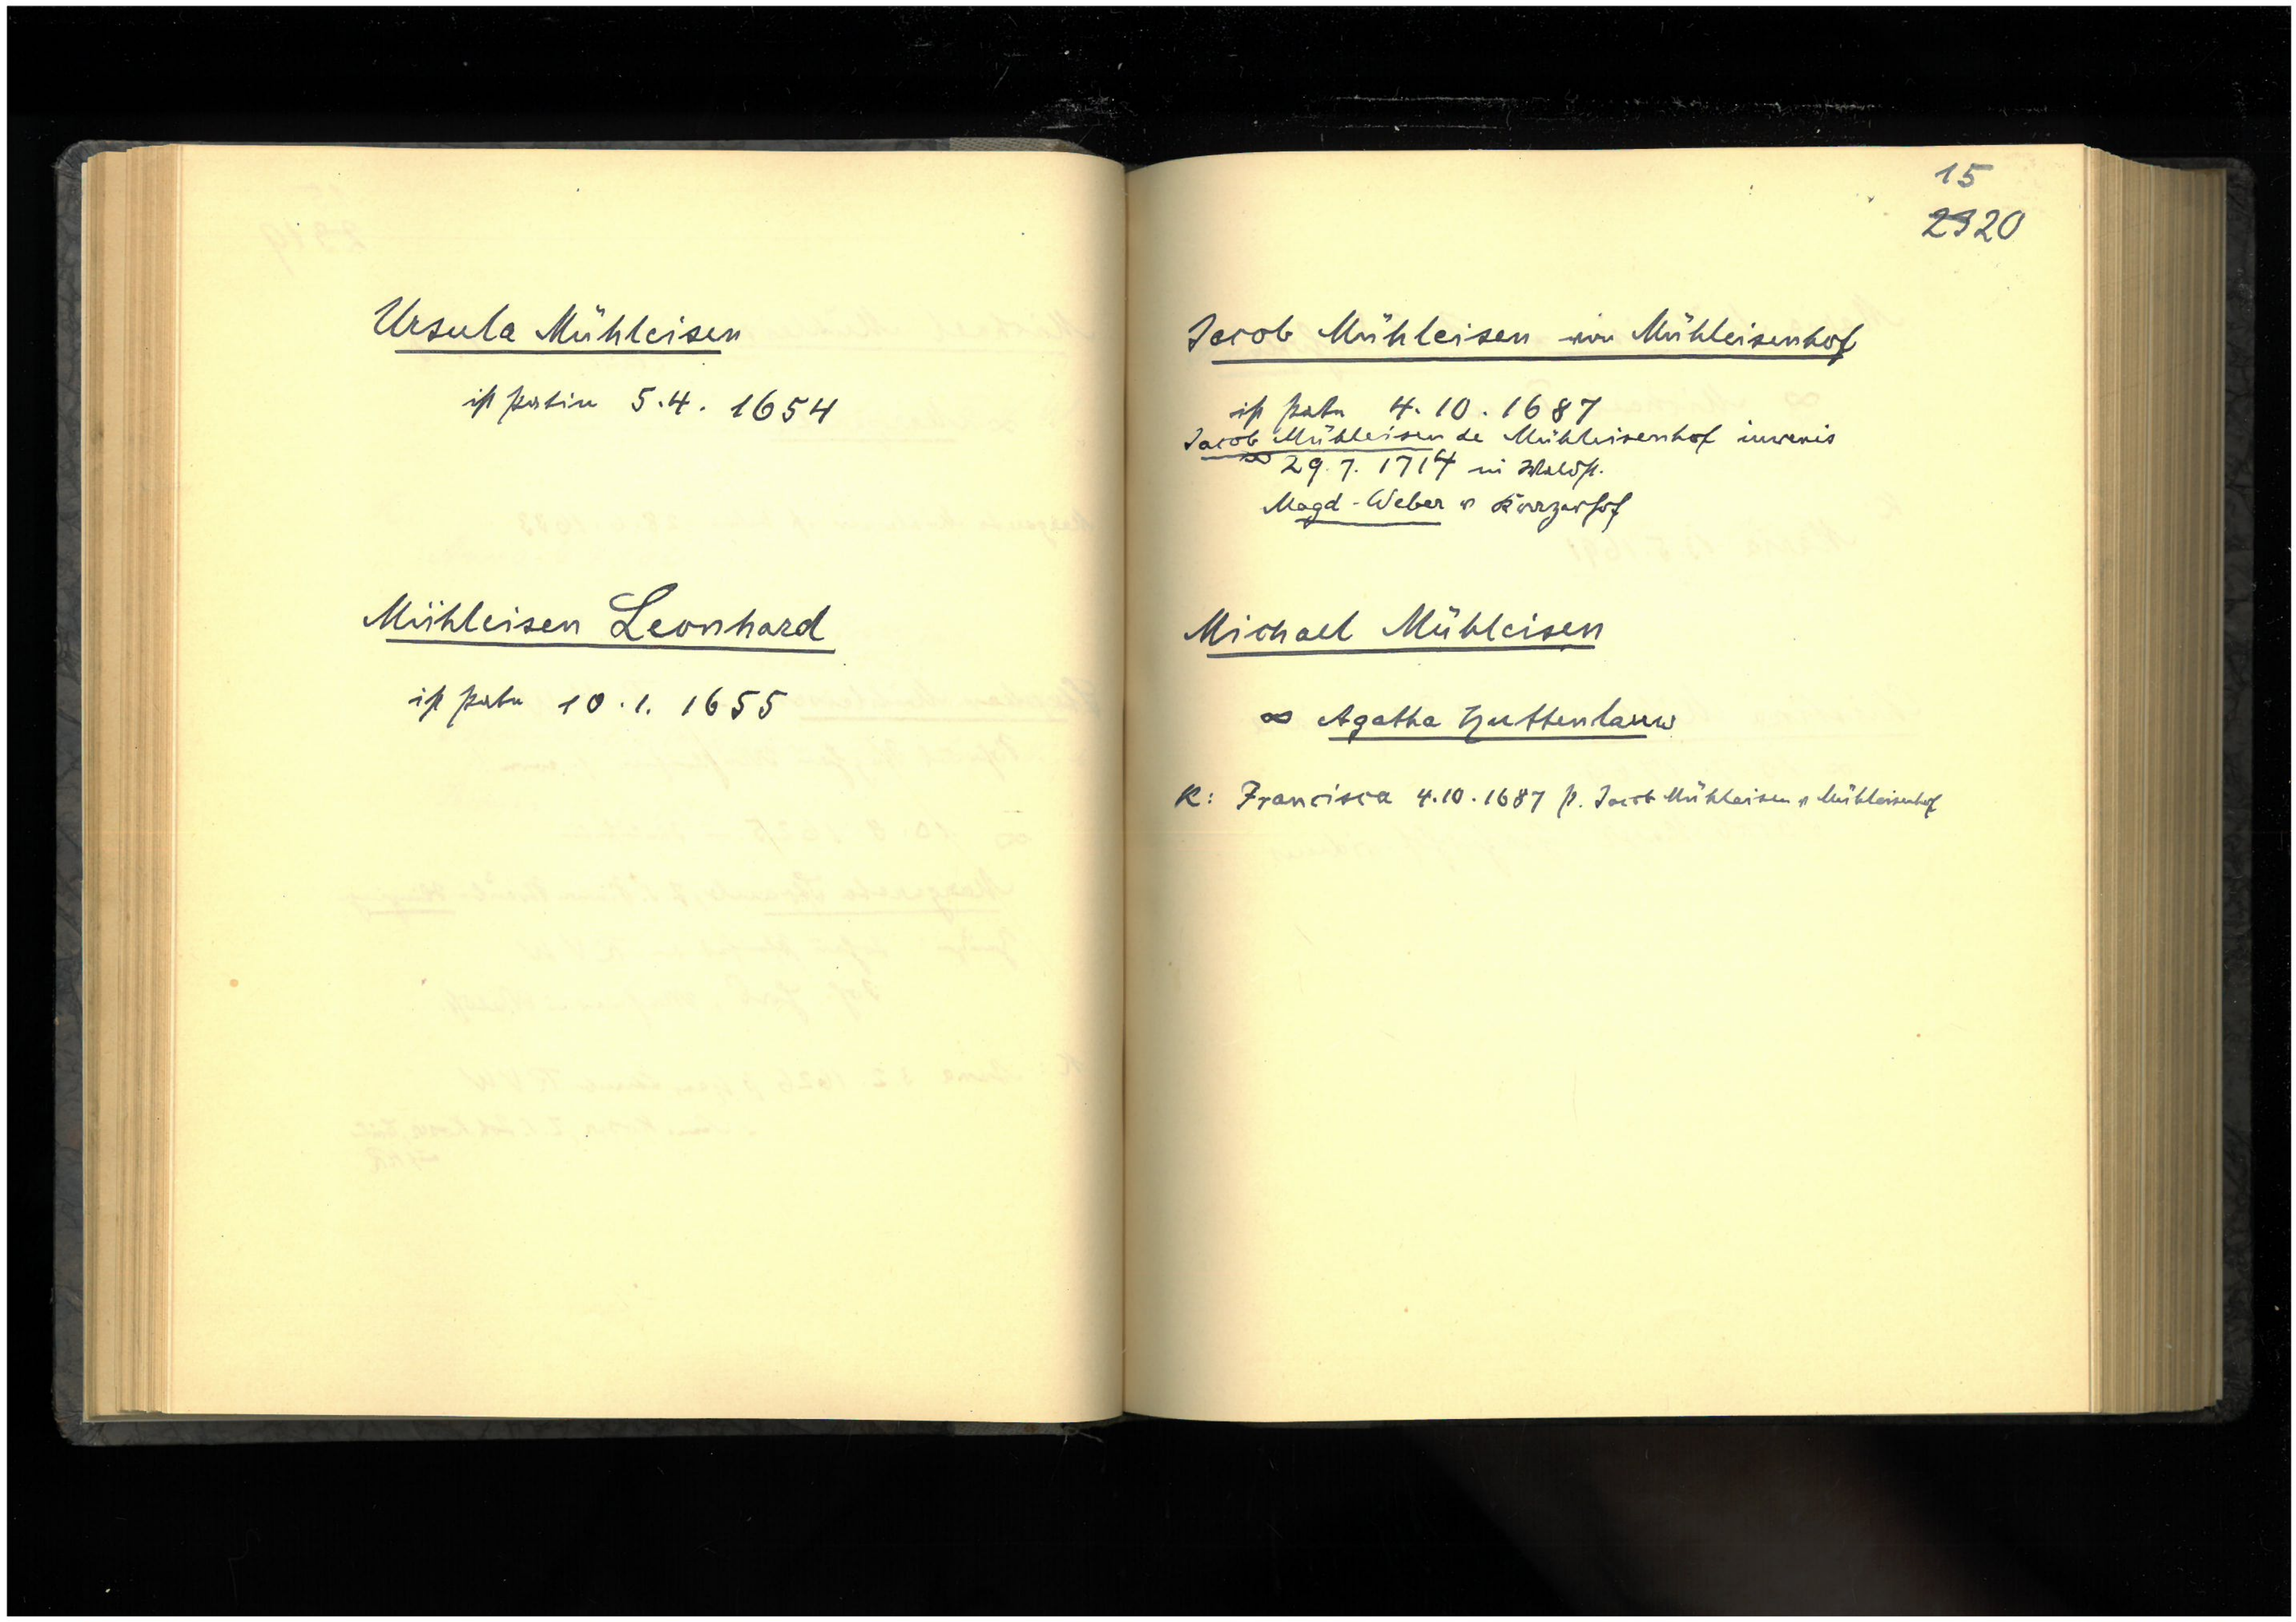 Ursula Mühleisen
ist patin 5.4. 1654
Mühleisen Leonhard
ist pate 10.1. 1655
15
2320
Jacob Mühleisen von Mühleisenhof
ist pate 4.10.1687
Jacob Mühleisen de Mühleisenhof iuvenis
∞ 29.7. 1714 in Waldst.
Magd. Weber v
Michael Mühleisen
∞ Agatha Huttenlauw
K: Francisca 4.10.1687 p. Jacob Mühleisen v Mühleisenhof